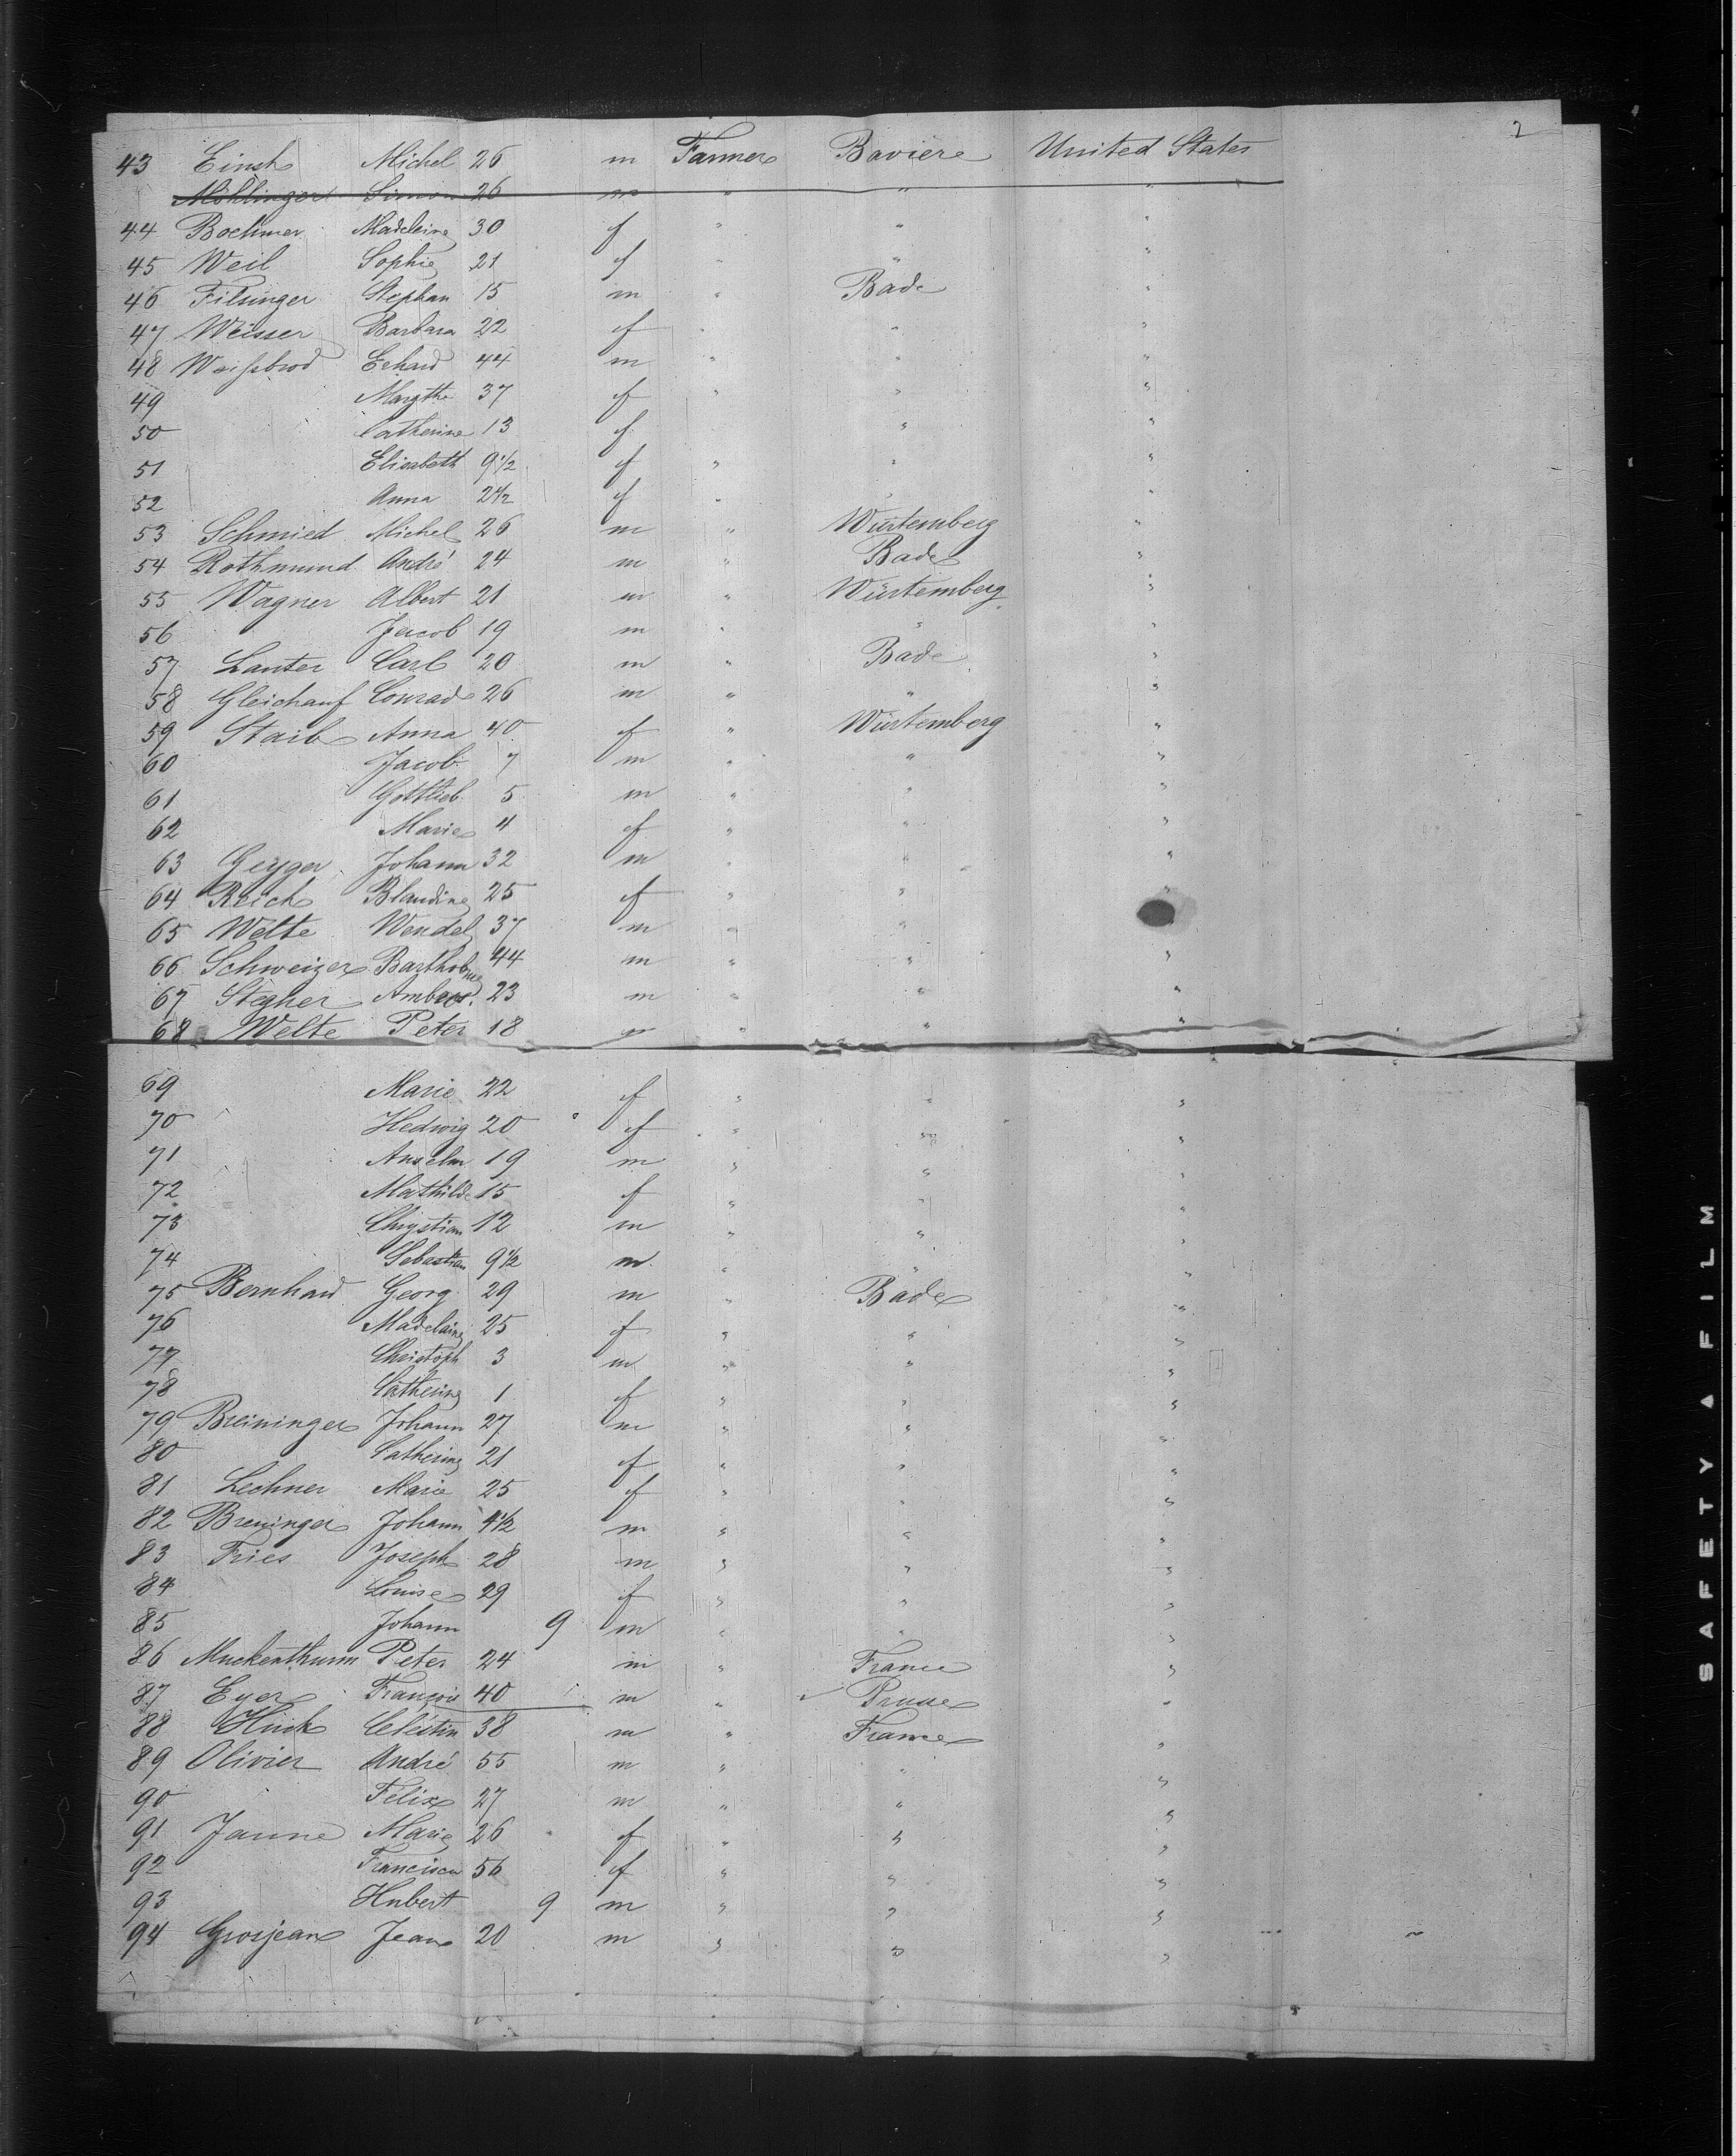 2
43 Einsh Michel 26 m Farmer Baviere United States
Möhlinger Simon 26 m " " "
44 Boehmer Madeleine 30 f " " "
45 Weil Sophie 21 f " " "
46 Filsinger Stephan 15 m " Bade "
47 Weisser Barbara 22 f " " "
48 Weissbrod Echard 44 m " " "
49 Margthe 37 f " " "
50 Catherine 13 f " "
51 Elisabeth 9 1/2 f " " "
52 Anna 2 1/2 f " " "
53 Schmied Michel 26 m " Würtemberg "
54 Rothmund André 24 m " Bade "
55 Wagner Albert 21 m " Würtemberg "
56 Jacob 19 m " " "
57 Lauter Carl 20 m " Bade "
58 Gleichauf Conrad 26 m " " "
59 Staib Anna 40 f " Würtemberg "
60 Jacob 7 m " " "
61 Gottlieb 5 m " " "
62 Marie 4 f " " "
63 Geyger Johann 32 m " " "
64 Reich Blandine 25 f " " "
65 Welte Wendel 37 m " " "
66 Schweizer Bartholmee 44 m " " "
67 Stegher Ambros. 23 m " " "
68 Welte Peter 18 m " " "
69 Marie 22 f " " "
70 Hedwig 20 f " " "
71 Anselm 19 m " " "
72 Mathilde 15 f " " "
73 Chrystian 12 m " " "
74 Sebastian 9 1/2 m " " "
75 Bernhard Georg 29 m " Bade "
76 Madelaine 25 f " " "
77 Christoph 3 m " " "
78 Catherine 1 f " " "
79 Breininger Johann 27 m " " "
80 Catherine 21 f " " "
81 Lechner Marie 25 f " " "
82 Breninger Johann 4 1/2 m " " "
83 Fries Joseph 28 m " " "
84 Louise 29 f " " "
85 Johann 9 m " " "
86 Muckenthurm Peter 24 m " France "
87 Eyer François 40 m " Prusse "
88 Hück Celéstin 38 m " France "
89 Olivier André 55 m " " "
90 Felix 27 m " " "
91 Janne Marie 26 f " " "
92 Francisca 56 f " " "
93 Hubert 9 m " " "
94 Grosjean Jean 20 m " " "
SAFETY FILM